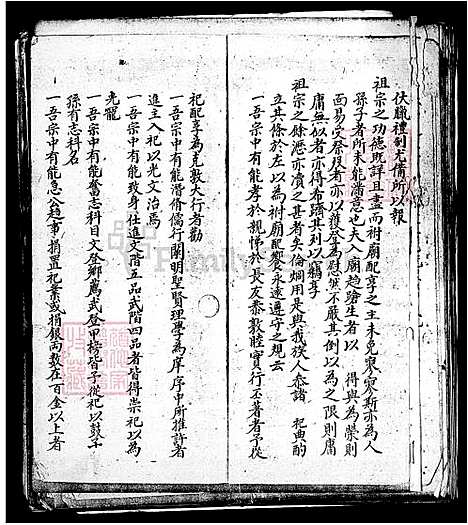 伏臘禮制尤備所以報
祖宗之功德既詳且盡而祔廟配享之主未免寥寥斯亦為人
孫子者所未能滿意也夫入廟趨蹌生者以 得與為榮則
面易受祭沒者亦以獲登為慰然不嚴其例以為之限則庸
庸無似者亦得布據其列以竊享
祖宗之餘瀝亦瀆之甚者矣倫烟用是與我族人恭諸 祀典酌
立其條於左以為祔廟配饗永遠遵守之規云
一吾宗中有能孝於親悌於長友恭敦睦實行丕著者予從
祀配享為克敦大行者勸
一吾宗中有能潛脩儒行闡明聖賢理學為庠序中所推許者
進主入祀以光文治焉
一吾宗中有能致身仕進文階五品武階四品者皆得崇祀以為
光寵
一吾宗中有能奮志科目文登鄉薦武登甲榜皆予從祀以鼓子
孫有志科名
一吾宗中有能急公趨事捐置祀業或捐銀兩數在百金以上者
Family